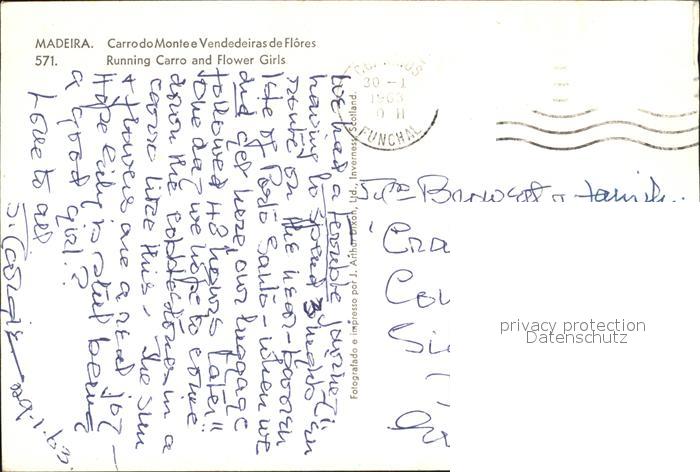 MADEIRA. Carro do Monte e Vendedeiras de Flôres
571. Running Carro and Flower Girls
We had a terrible journey
having to spend 3 nights in
route on the near-barren
Isle of Porto Santo - when we
did get here our luggage
followed 48 hours later!!
One day we hope to come
down the cobblestones in a
carro like this, the sun
& flowers are a real joy —
Hope is still being
a good girl?
Love to all
29.1.63.
Fotografado e impresso por J. Arthur Dixon, Ltd., Inverness, Scotland.
30-1
1963
FUNCHAL
Cra
Cou
Si
privacy protection
Datenschutz